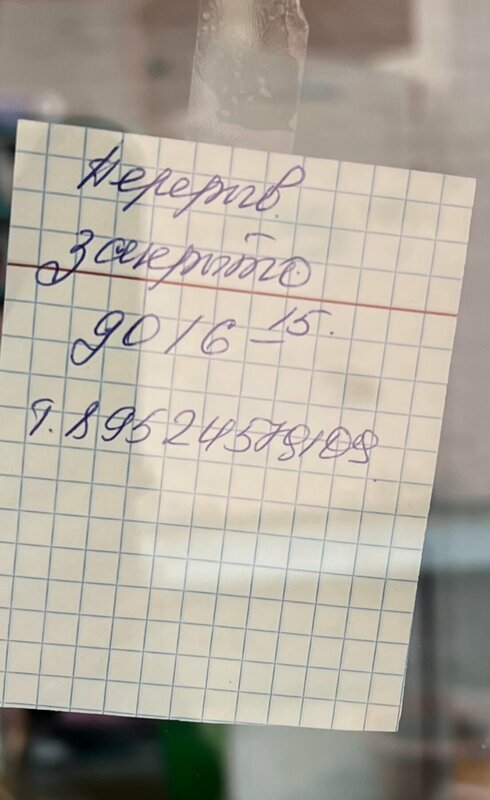 Перерыв
Закрыто
до 16-15.
т. 89524579109